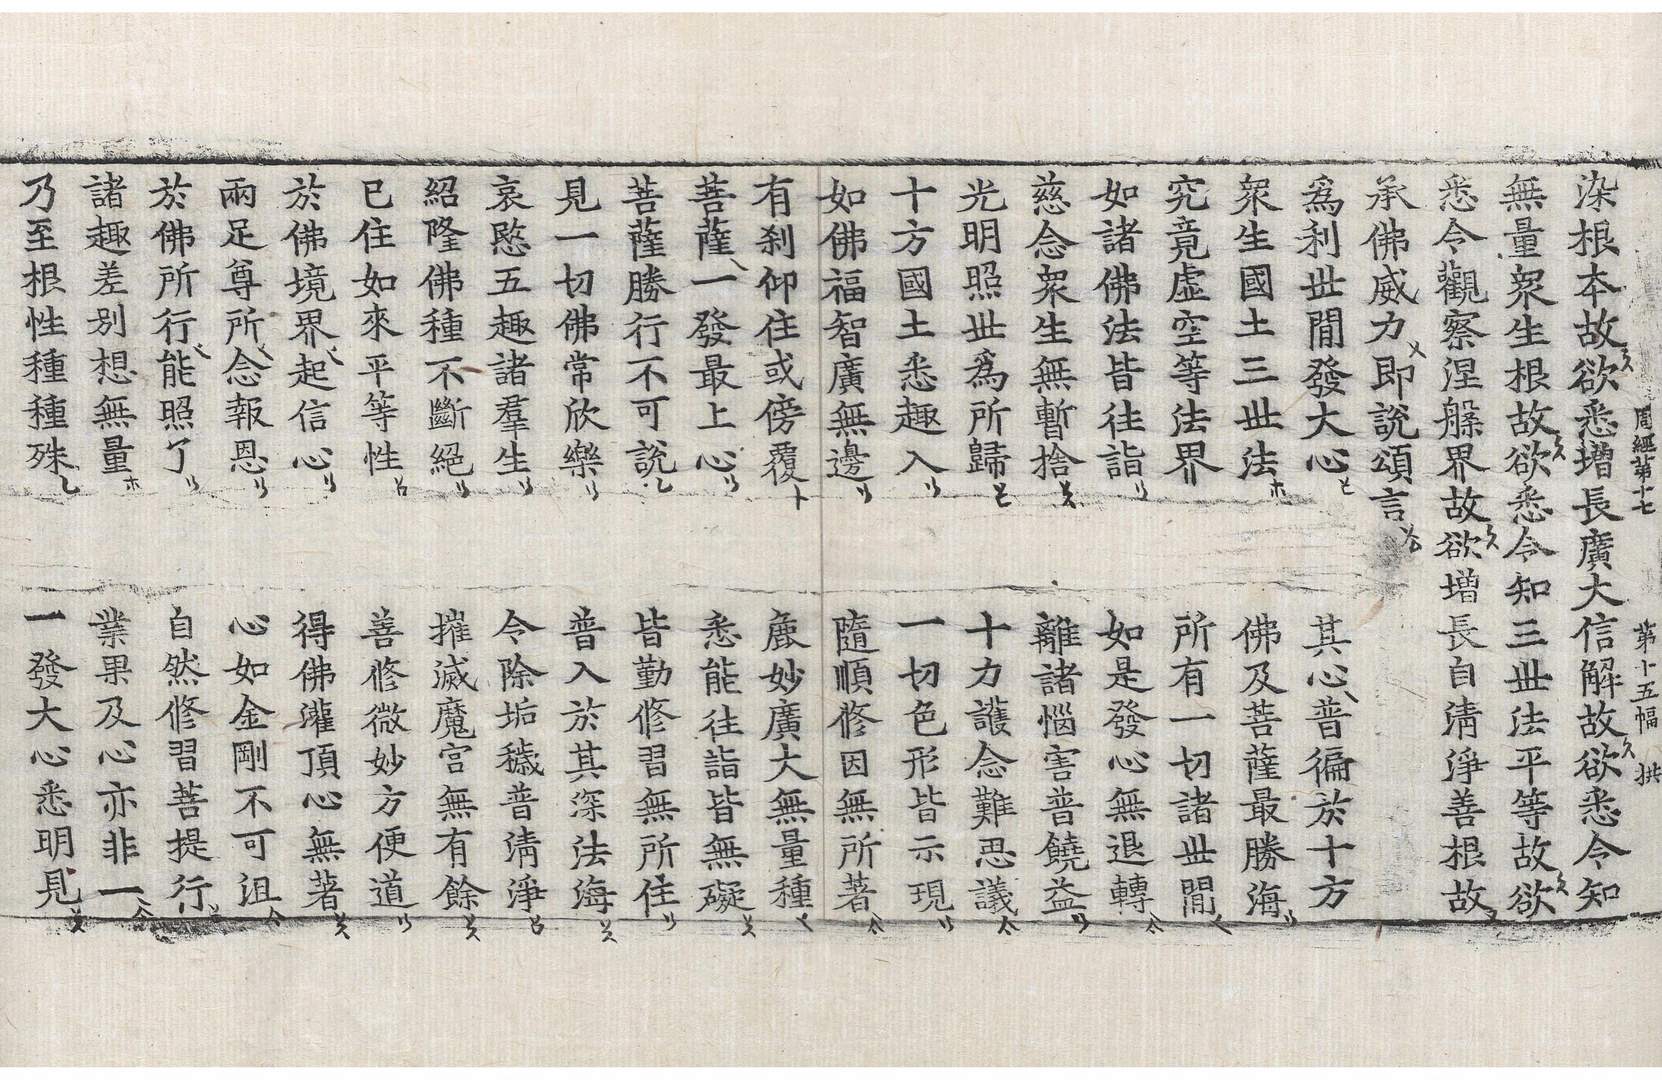 周經第十七 第十五幅 拱
染根本故欲悉增長廣大信解故欲悉令知
無量衆生根故欲悉令知三世法平等故欲
悉令觀察涅槃界故欲增長自清淨善根故
承佛威力即說頌言
爲利世閒發大心 其心普徧於十方
衆生國土三世法 佛及菩薩最勝海
究竟虛空等法界 所有一切諸世閒
如諸佛法皆往詣 如是發心無退轉
慈念衆生無暫捨 離諸惱害普饒益
光明照世爲所歸 十力護念難思議
十方國土悉趣入 一切色形皆示現
如佛福智廣無邊 隨順修因無所著
有刹仰住或傍覆 麁妙廣大無量種
菩薩一發最上心 悉能往詣皆無礙
菩薩勝行不可說 皆勤修習無所住
見一切佛常欣樂 普入於其深法海
哀愍五趣諸羣生 令除垢穢普清淨
紹隆佛種不斷絕 摧滅魔宮無有餘
已住如來平等性 善修微妙方便道
於佛境界起信心 得佛灌頂心無著
兩足尊所念報恩 心如金剛不可沮
於佛所行能照了 自然修習菩提行
諸趣差別想無量 業果及心亦非一
乃至根性種種殊 一發大心悉明見